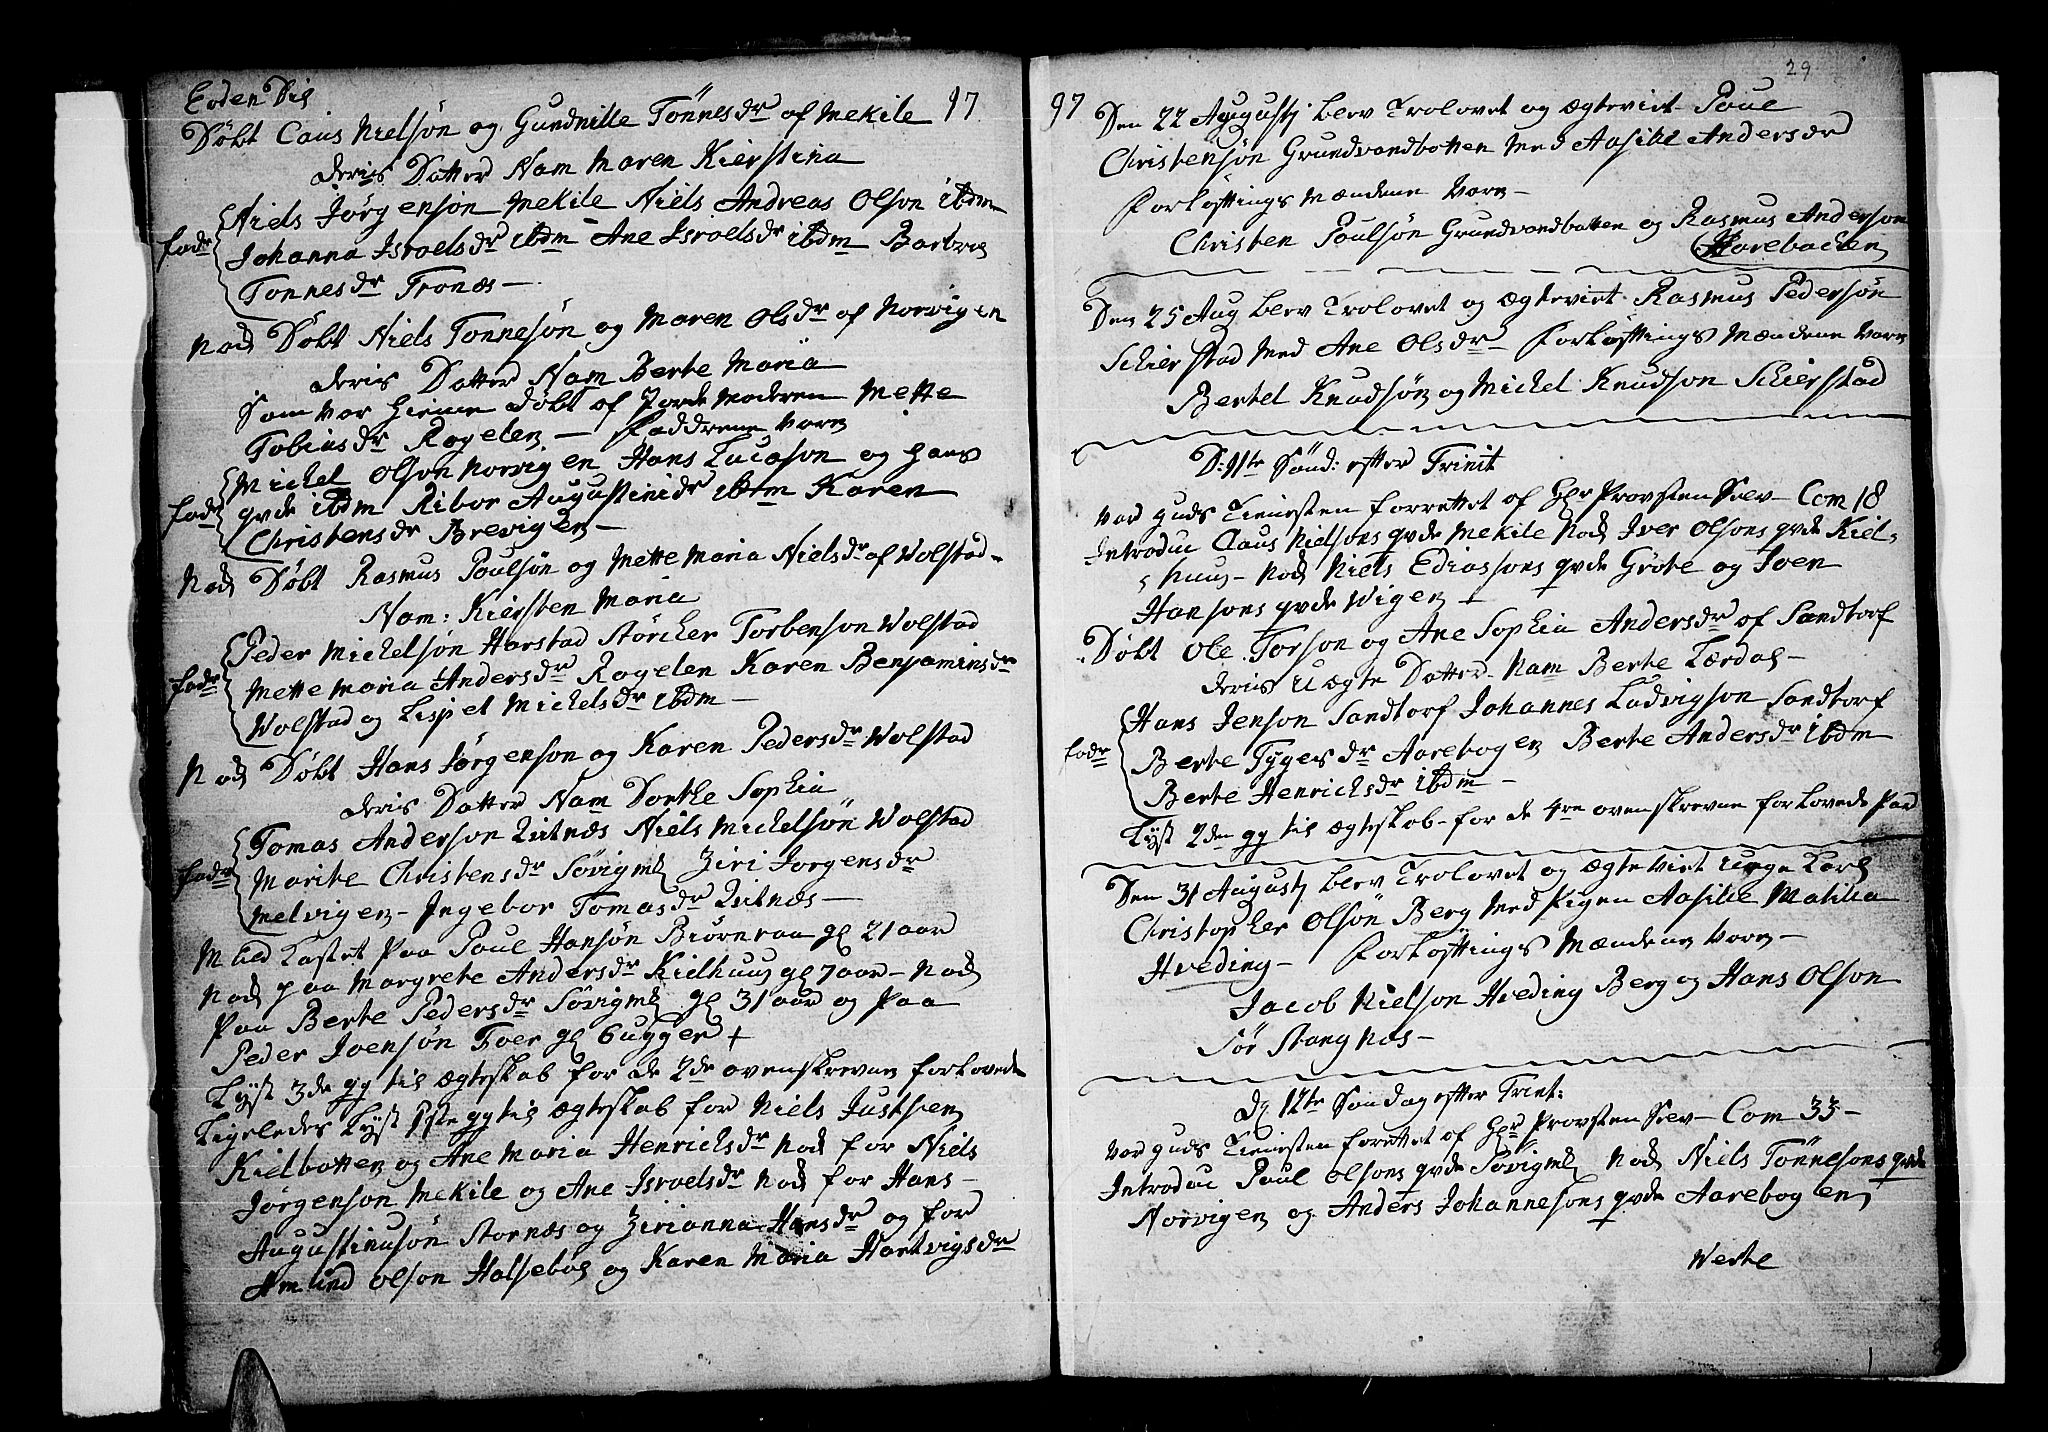 Eoden Die
97
Döbt Caus Nielsön og Gundnille Tönnesdr af Mekile
deris Datter Nam Maren Kierstina
Niels Jörgenson Mekile Niels Andreas Olson ibdm
fadr Johanna Isroelsdr ibdm Ane Isroelsdr ibdm Barbra
Tonnesdr Tronæs —
Nock Döbt Niels Tonnesön og Maren Olsdr af Norvigen
deris Datter Nam Berte Maria
Som var hieme döbt af Jordemoderen Mette
Tobiasdr Rogelen — Faddrene varn
Michel Olson Norvigen Hans Lucason og hans
fadr qvde ibdm Ribor Augustinidr ibdm Karen
Christensdr Brevigen —
Nock Döbt Rasmus Poulsön og Mette Maria Nielsdr af Wolstad
Nam: Kiersten Maria
Peder Michelsön Harstad Störcker Torbenson Wolstad
fadr Mette Maria Andersdr Rogelen Karen Benjaminsdr
Wolstad og Lispet Michelsdr ibdm —
Nock Döbt Hans Jörgenson og Karen Pedersdr Wolstad
deris Datter Nam Dorthe Sophia
Tomas Anderson Qvitnæs Niels Michelsön Wolstad
fadr Marite Christensdr Sövigml Ziri Jorgensdr
Melvigen — Ingebor Tomasdr Qvitnæs —
Muld Kastet paa Poul Hansön Biörnraa gl 21 aar
Nock paa Margrete Andersdr Kielhuus gl 7 aar — Nock
paa Berte Pedersdr Sövigml gl 31 aar og paa
Peder Ivensön Foer gl 6 ugger +
Lyst 3de gg til ægteskab for de 2de ovenskrevne forlovede
Ligeledes Lyst 1ste gg til ægteskab for Niels Justsen
Kielbotten og Ane Maria Henrichsdr Nock for Niels
Jörgenson Mekile og Ane Isroelsdr Nock for Hans
Augustinusön Stornæs og Zirianna Hansdr og for
Amund Olson Halseboe og Karen Maria Hartvigsdr
29
97
Den 22 Augustj blev Trolovet og ægteviet Poul
Christensön Grundvandbotten med Aasille Andersdr
Forlöftings Mændene varn —
Christen Poulsön Grundvandbotten og Rasmus Anderson
Aarebochen
Den 25 Aug blev Trolovet og ægteviet Rasmus Pedersön
Schierstad med Ane Olsdr — Forlöftings Mændene varn
Bertel Knudsön og Michel Knudson Schierstad
D: 11te Sönd: efter Trinit
var guds Tienesten forrettet af Hr Provsten Selv — Com 18
Introduc Claus Nielsons qvde Mekile Nock Iver Olsons qvde Kiel-
huus — Nock Niels Ediassons qvde Gröte og Iven
Hansons qvde Wigen —
Döbt Ole Torson og Ane Sophia Andersdr af Sandtorf
deris uægte Datter Nam Berte Lærdal —
Hans Jenson Sandtorf Johannes Ludvigson Sandtorf
fadr Berte Tygesdr Aarebogen Berte Andersdr ibdm
Berte Henrichsdr ibdm —
Lyst 2den gg til ægteskab for de 4re ovenskrevne forlovede Par
Den 31 Augustj blev Trolovet og ægteviet unge Karl
Christopher Olsön Berg med Pigen Aasille Matilia
Hveding — Forlöftings Mændene varn —
Jacob Nielson Hveding Berg og Hans Olson
Sör Stangnes —
D 12te Söndag efter Trinit:
var guds Tienesten forrettet af Hr Provsten Selv — Com 33 —
Introduc Poul Olsons qvde Sövigml Nock Niels Tönnesons qvde
Norvigen og Anders Johannesons qvde Aarebogen
Werte